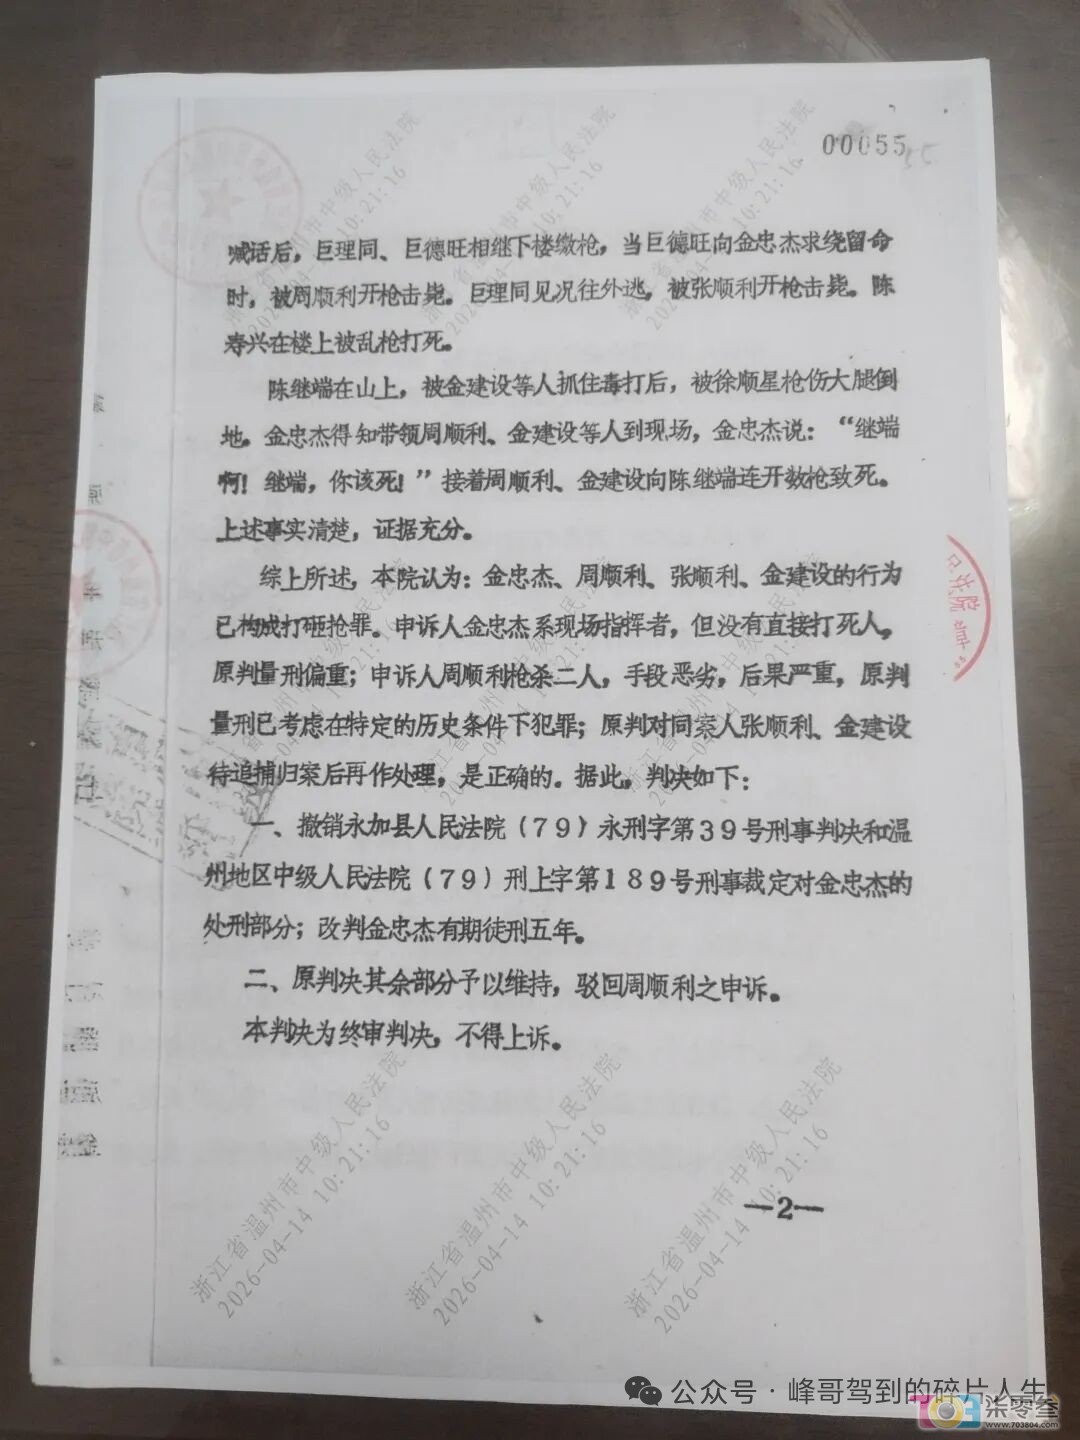 00055
喊话后，巨理同、巨德旺相继下楼缴枪，当巨德旺向金忠杰求绕留命
时，被周顺利开枪击毙。巨理同见况往外逃，被张顺利开枪击毙。陈
寿兴在楼上被乱枪打死。
陈继端在山上，被金建设等人抓住毒打后，被徐顺星枪伤大腿倒
地。金忠杰得知带领周顺利、金建设等人到现场，金忠杰说：“继端
啊！继端，你该死！”接着周顺利、金建设向陈继端连开数枪致死。
上述事实清楚，证据充分。
综上所述，本院认为：金忠杰、周顺利、张顺利、金建设的行为
已构成打砸抢罪。申诉人金忠杰系现场指挥者，但没有直接打死人，
原判量刑偏重；申诉人周顺利枪杀二人，手段恶劣，后果严重，原判
量刑已考虑在特定的历史条件下犯罪；原判对同案人张顺利、金建设
待追捕归案后再作处理，是正确的。据此，判决如下：
一、撤销永加县人民法院（79）永刑字第39号刑事判决和温
州地区中级人民法院（79）刑上字第189号刑事裁定对金忠杰的
处刑部分；改判金忠杰有期徒刑五年。
二、原判决其余部分予以维持，驳回周顺利之申诉。
本判决为终审判决，不得上诉。
—2—
浙江省温州市中级人民法院
2026-04-14 10:21:16
浙江省温州市中级人民法院
2026-04-14 10:21:16
浙江省温州市中级人民法院
2026-04-14 10:21:16
公众号·峰哥驾到的碎片人生
703 柒零叁
www.703804.com